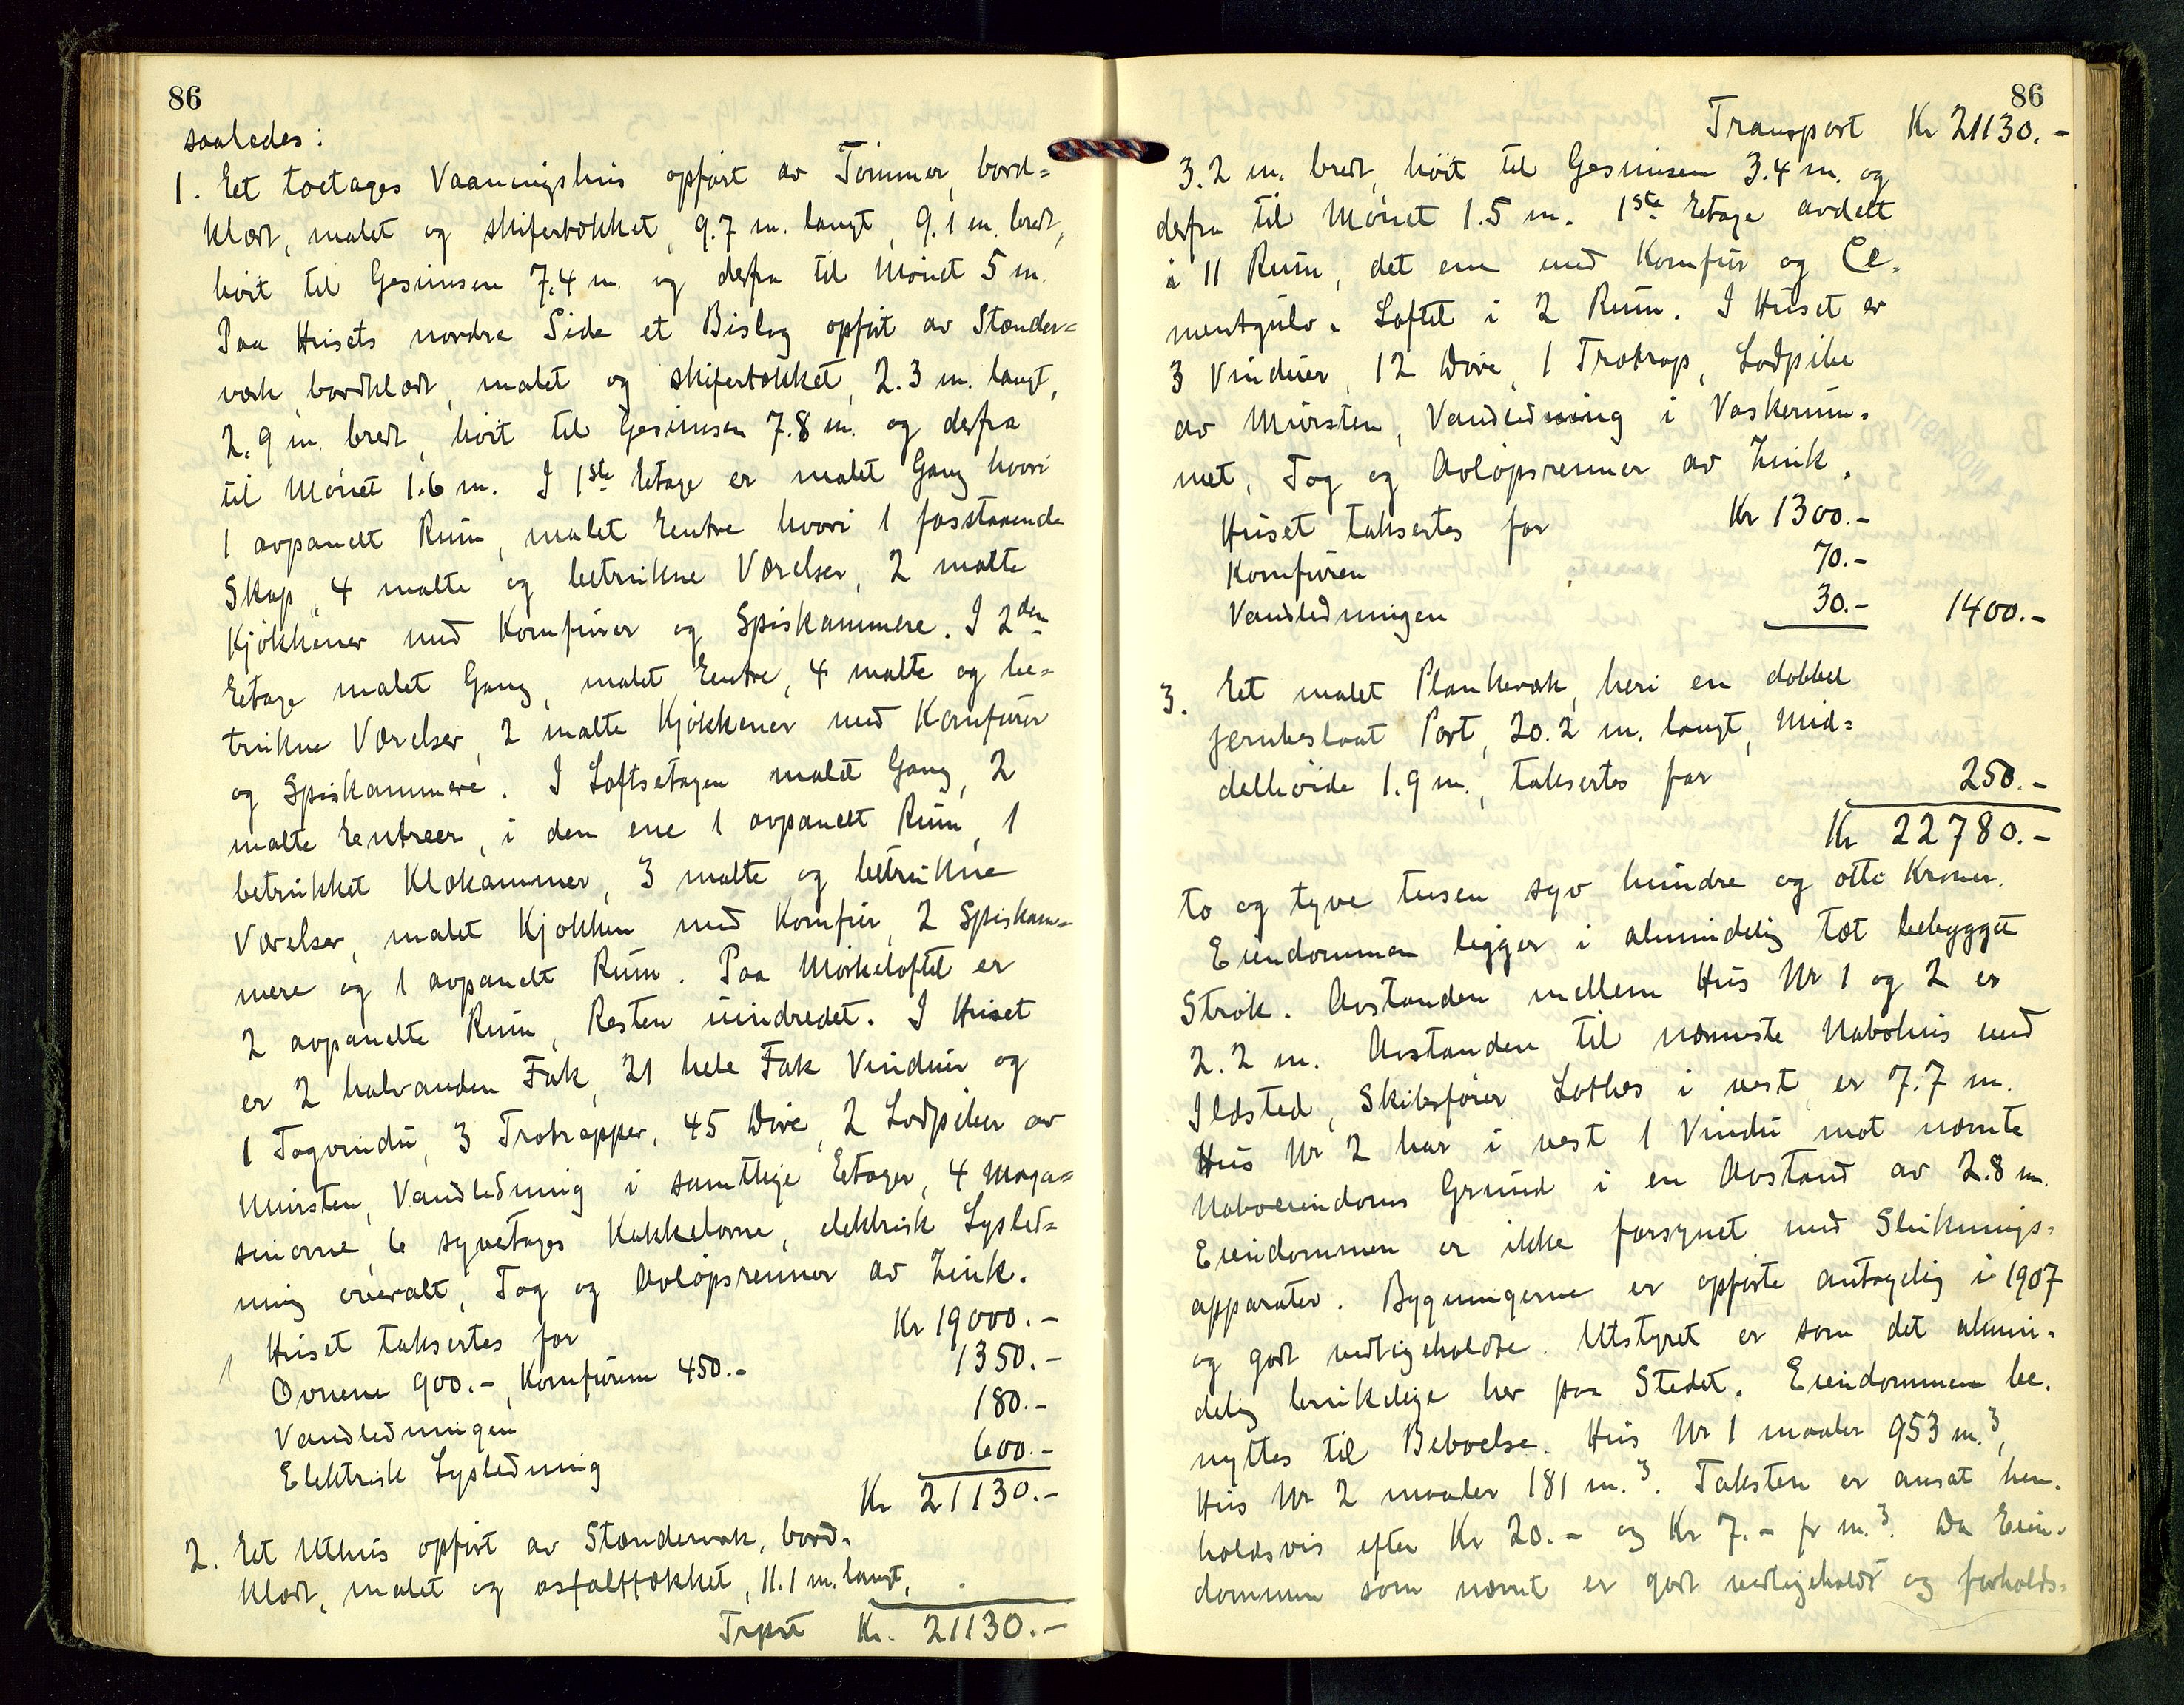 86
saaledes:
1. Eet toetages Vaaningshus opført av Tømmer, bord=
klædt, malet og skifertækket, 9.7 m. langt, 9.1 m. bredt,
høit til Gesimsen 7.4 m. og derfra til Mønet 5 m.
Paa Husets nordre Side et Bislag opført av Stænder=
værk, bordklædt, malet og skifertækket, 2.3 m. langt,
2.9 m. bredt, høit til Gesimsen 7.8 m. og derfra
til Mønet 1.6 m. I 1ste Etage er malet Gang hvori
1 avpanelt Rum, malet Entre hvori 1 fasstaaende
Skap, 4 malte og betrukne Værelser, 2 malte
Kjøkkener med Komfurer og Spiskammere. I 2den
Etage malet Gang, malet Entre, 4 malte og be=
trukne Værelser, 2 malte Kjøkkener med Komfurer
og Spiskammere. I Loftsetagen malet Gang, 2
malte Entreer, i den ene 1 avpanelt Rum, 1
betrukket Klækammer, 3 malte og betrukne
Værelser, malet Kjøkken med Komfur, 2 Spiskam=
mere og 1 avpanelt Rum. Paa Mørkeloftet er
2 avpanelte Rum, Resten uindredet. I Huset
er 2 halvanden Fak, 21 hele Fak Vinduer og
1 Tagvindu, 3 Trætrapper, 45 Døre, 2 Lodpiber av
Mursten, Vandledning i samtlige Etager, 4 Maga=
sinovne, 6 syvetages Kakkelovne, elektrisk Lysled=
ning overalt, Tag og Avløpsrenner av Zink.
Huset takseres for Kr 19000.-
Ovnene 900.-, Komfurene 450.- 1350.-
Vandledningen 180.-
Elektrisk Lysledning 600.-
Kr 21130.-
2. Eet Uthus opført av Stænderværk, bord-
klædt, malet og asfalttækket, 11.1 m. langt,
Trprt Kr. 21130.-
86
Transport Kr 21130.-
3.2 m. bredt, høit til Gesimsen 3.4 m. og
derfra til Mønet 1.5 m. 1ste Etage avdelt
i 11 Rum, det ene med Komfur og Ce-
mentgulv. Loftet i 2 Rum. I Huset er
3 Vinduer, 12 Døre, 1 Trætrap, Lodpibe
av Mursten, Vandledning i Vaskerum-
met, Tag og Avløpsrenner av Zink.
Huset taksertes for Kr 1300.-
Komfuren 70.-
Vandledningen 30.- 1400.-
3. Eet malet Plankeværk, heri en dobbel
jernbeslaat Port, 20.2 m. langt, Mid=
delhøide 1.9 m., taksertes for 250.-
Kr 22780.-
to og tyve tusen syv hundre og otti Kroner.
Eiendommen ligger i almindelig tæt bebygget
Strøk. Avstanden mellem Hus Nr 1 og 2 er
2.2 m. Avstanden til nærmeste Nabohus med
Ildsted, Skibsfører Lothes i vest er 7.7 m.
Hus Nr 2 har i vest 1 Vindu mot nævnte
Naboeiendoms Grund i en Avstand av 2.8 m.
Eiendommen er ikke forsynet med Sluknings-
apparater. Bygningerne er opførte antagelig i 1907
og godt vedligeholdte. Utstyret er som det almin-
delig brukelige her paa Stedet. Eiendommen be-
nyttes til Beboelse. Hus Nr 1 maaler 953 m.3,
Hus Nr 2 maaler 181 m.3. Taksten er ansat hen-
holdsvis efter Kr 20.- og Kr 7.- pr m.3. Da Eien-
dommen som nævnt er godt vedligeholdt og forholds-